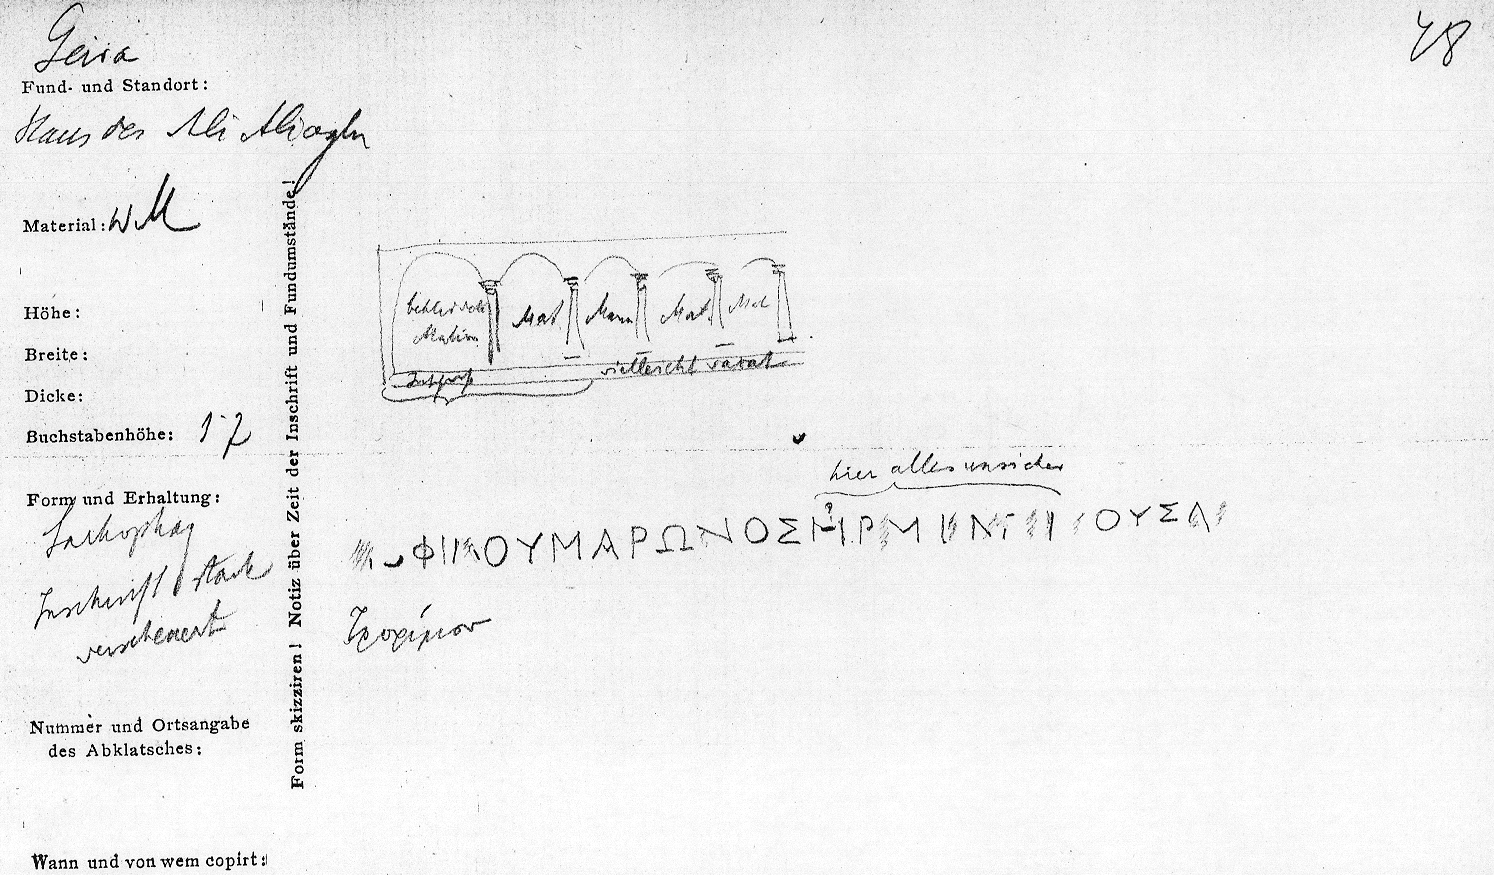 Geira
48
Fund- und Standort:
Haus des Ali Alioglu
Material: W M
Höhe:
Breite:
Dicke:
Buchstabenhöhe: 1·7
Form und Erhaltung:
Sarkophag
Inschrift stark
verscheuert
Nummer und Ortsangabe
des Abklatsches:
Wann und von wem copirt:
Form skizziren! Notiz über Zeit der Inschrift und Fundumstände!
Mat. Mann Mat. Mat
vielleicht vacat
hier alles unsicher
ΟΥΜΑΡΩΝΟΣ ΟΥΣΑ
Τροφίμου